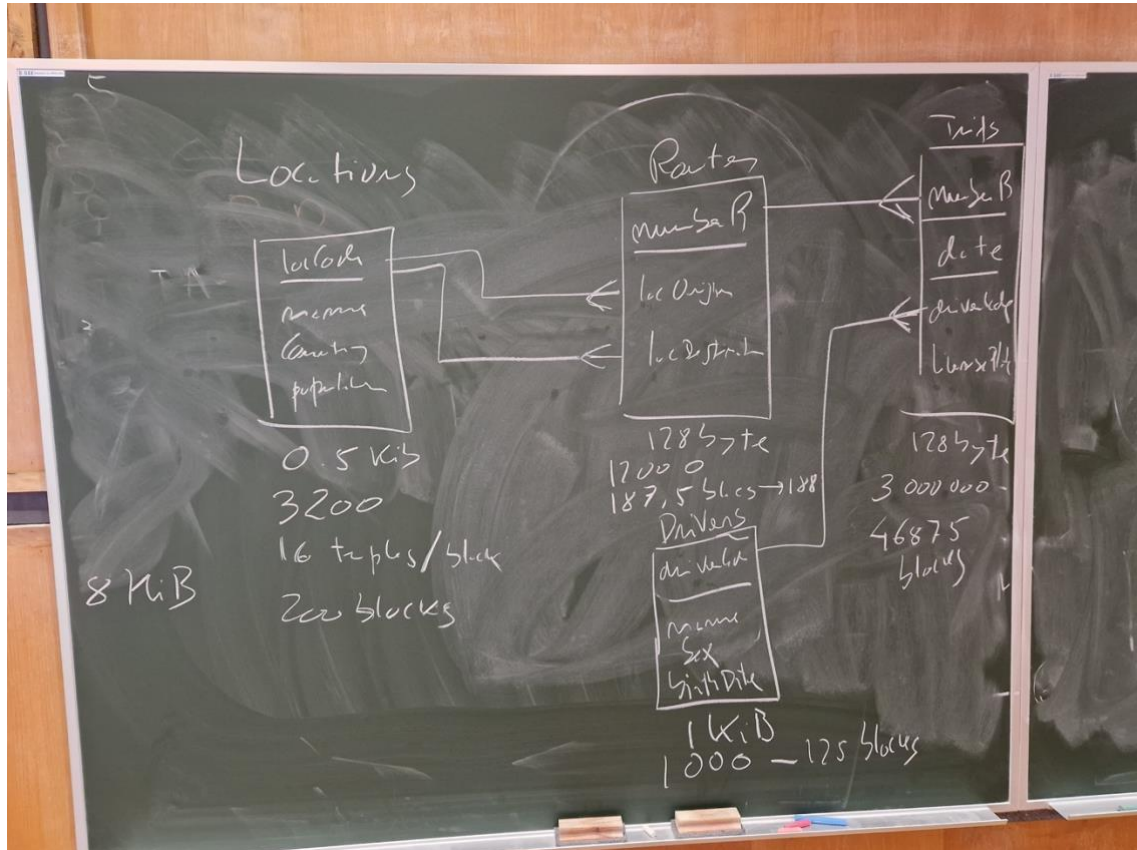 Locations
locCode
name
Country
population
0.5 KiB
3200
16 tuples/block
200 blocks
8 KiB
Routes
numberR
locOrigin
locDestinatn
128 byte
12000
187,5 blocs → 188
Drivers
driverCode
name
Sex
birthDate
1 KiB
1000 – 125 blocks
Trips
numberR
date
driverCode
128 byte
3 000 000
46875
blocks